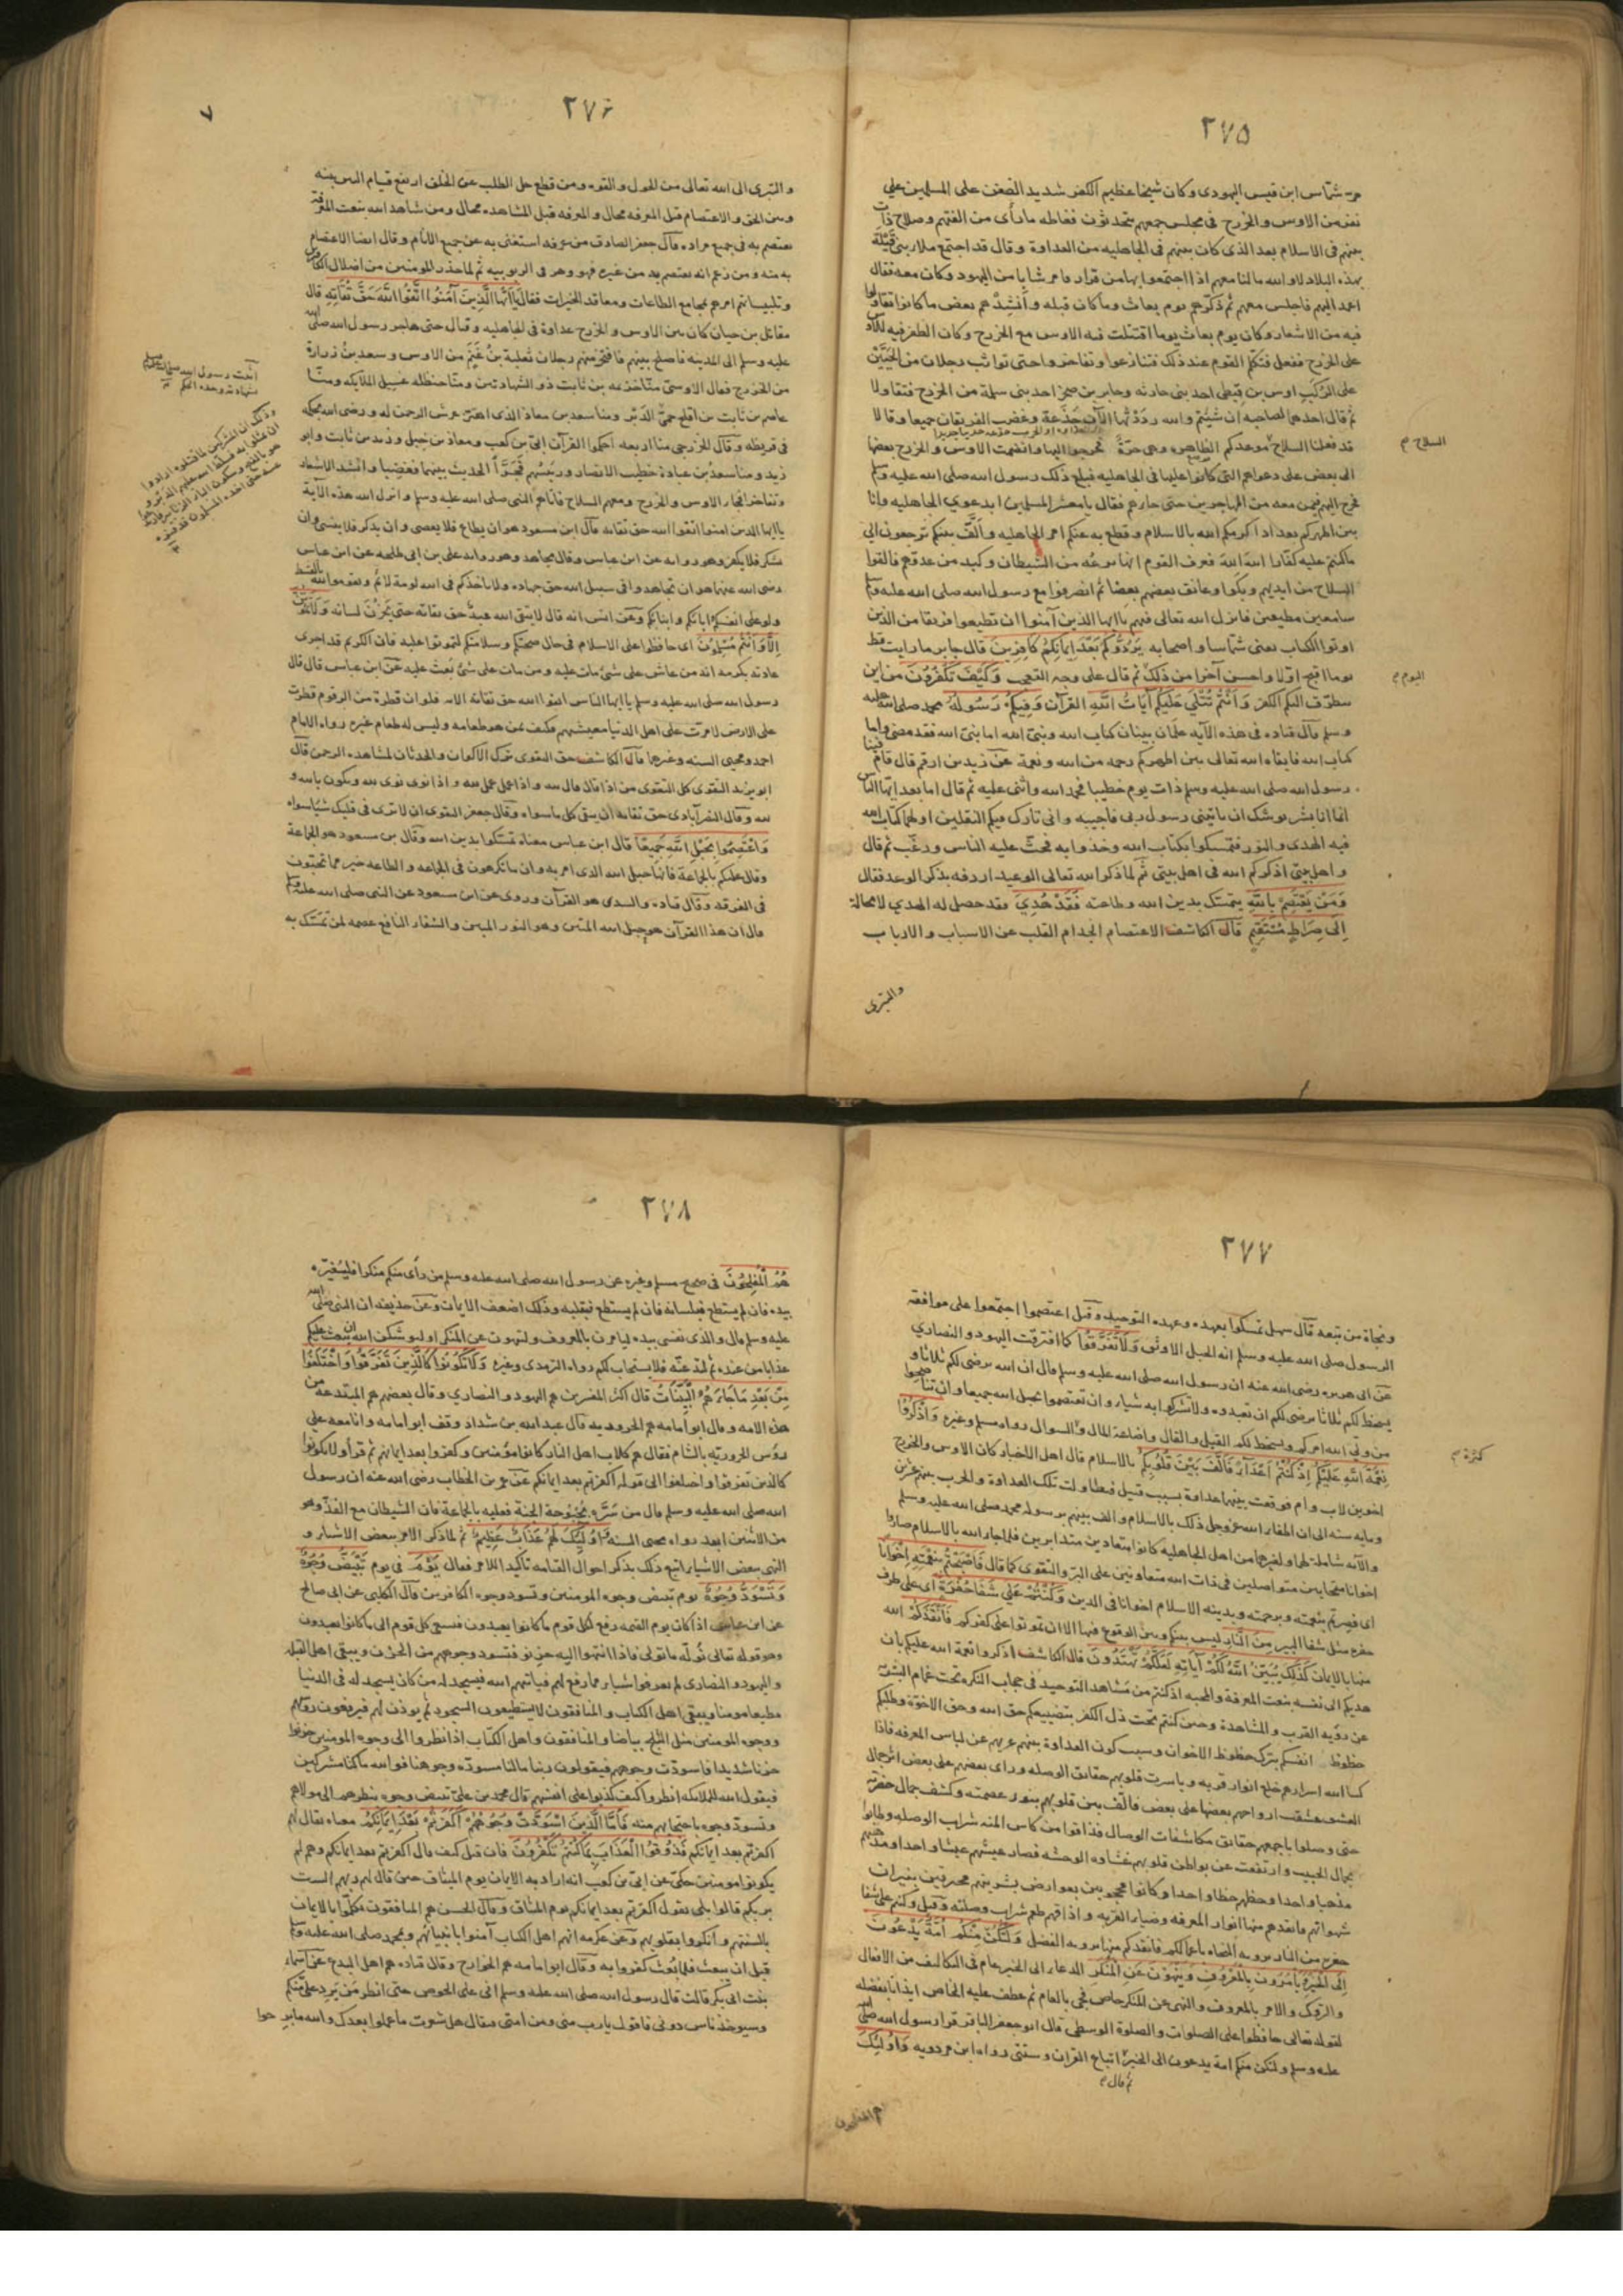 ٢٧٥
مرّ شمّاس ابن قيس اليهودى وكان شيخا عظيم الكفر شديد الضغن على المسلمين على
نفر من الاوس والخزرج فى مجلس جمعهم يتحدثون فغاظه ما رأى من الفتهم وصلاح ذات
بينهم فى الاسلام بعد الذى كان بينهم فى الجاهليه من العداوة وقال قد اجتمع ملا بنى قيلة
بهذه البلاد لا والله ما لنا معهم اذا اجتمعوا بها من قرار فامر شابا من اليهود وكان معه فقال
اعمد اليهم فاجلس معهم ثم ذكّرهم يوم بعاث وما كان قبله وأنشِدْهم بعض ما كانوا تقاولوا
فيه من الاشعار وكان يوم بعاث يوما اقتتلت فيه الاوس مع الخزرج وكان الظفر فيه للاوس
على الخزرج ففعل فتكلم القوم عند ذلك فتنازعوا وتفاخروا حتى تواثب رجلان من الحَيَّيْن
على الرُّكَب اوس بن قيظى احد بنى حارثه وجابر بن صخر احد بنى سلمة من الخزرج فتقاولا
ثم قال احدهما لصاحبه ان شئتم والله رددتها الآن جذعة وغضب الفريقان جميعا وقالا
قد فعلنا السلاح موعدكم الظاهره وهى حرّة فخرجوا اليها وانضمت الاوس والخزرج بعضها
السلاح م
الى بعض على دعواهم التى كانوا عليها فى الجاهليه فبلغ ذلك رسول الله صلى الله عليه وسلم
فخرج اليهم فيمن معه من المهاجرين حتى جاءهم فقال يا معشر المسلمين ابدعوى الجاهليه وانا
بين اظهركم بعد اذ اكرمكم الله بالاسلام وقطع به عنكم امر الجاهليه وألّف بينكم ترجعون الى
ما كنتم عليه كفّارا الله الله فعرف القوم انها نزغه من الشيطان وكيد من عدوّهم فالقوا
السلاح من ايديهم وبكوا وعانق بعضهم بعضا ثم انصرفوا مع رسول الله صلى الله عليه وسلم
سامعين مطيعين فانزل الله تعالى فيهم يا ايها الذين آمنوا ان تطيعوا فريقا من الذين
اوتوا الكتاب يعنى شمّاسا واصحابه يَرُدُّوكُم بَعْدَ اِيمَانِكُمْ كَافِرِينَ قال جابر ما رايت قط
يوما اقبح اوّلا واحسن آخرا من ذلك ثم قال على وجه التعجب وَكَيْفَ تَكْفُرُونَ من اين
اليوم م
يتطرّق اليكم الكفر وَأَنْتُمْ تُتْلَى عَلَيْكُمْ آيَاتُ اللَّهِ القرآن وَفِيكُمْ رَسُولُهُ محمد صلى الله عليه
وسلم قال قتاده فى هذه الآيه علمان بينان كتاب الله ونبىّ الله اما نبىّ الله فقد مضى واما
كتاب الله فابقاه الله تعالى بين اظهركم رحمه من الله ونعمة عن زيد بن ارقم قال قام فينا
رسول الله صلى الله عليه وسلم ذات يوم خطيبا فحمد الله واثنى عليه ثم قال اما بعد ايها الناس
انما انا بشر يوشك ان ياتينى رسول ربى فاجيبه وانى تارك فيكم الثقلين اولهما كتاب الله
فيه الهدى والنور فتمسكوا بكتاب الله وخذوا به فحثّ عليه الناس ورغّب ثم قال
واهل بيتى اذكركم الله فى اهل بيتى ثم لما ذكر الله تعالى الوعيد اردفه بذكر الوعد فقال
وَمَنْ يَعْتَصِمْ بِاللَّهِ يتمسك بدين الله وطاعته فَقَدْ هُدِيَ فقد حصل له الهدي لا محالة
اِلَى صِرَاطٍ مُسْتَقِيمٍ قال الكاشف الاعتصام انجذام القلب عن الاسباب والارباب
والتبرى
٢٧٦
٧
والتبرى الى الله تعالى من الحول والقوه ومن قطع حبل الطلب عن الخلق ارتفع قيام البين بينه
وبين الحق والاعتصام قبل المعرفه محال والمعرفه قبل المشاهده محال ومن شاهد الله بنعت المعرفة
يعتصم به فى جميع مراده قال جعفر الصادق من عرفه استغنى به عن جميع الانام وقال ايضا الاعتصام
به منه ومن زعم انه يعتصم به من غيره فهو وهن فى الربوبيه ثم لما حذر المومنين من اضلال الكافرين
وتلبيساتهم امرهم بمجامع الطاعات ومعاقد الخيرات فقال يَا أَيُّهَا الَّذِينَ آمَنُوا اتَّقُوا اللَّهَ حَقَّ تُقَاتِهِ قال
مقاتل بن حيان كان بين الاوس والخزرج عداوة فى الجاهليه وقتال حتى هاجر رسول الله صلى الله
عليه وسلم الى المدينه فاصلح بينهم فافتخر منهم رجلان ثعلبة بنُ غُنْمٍ من الاوس وسعد بنُ زرارة
من الخزرج فقال الاوسىّ منّا خزيمه بن ثابت ذو الشهادتين ومنا حنظله غسيل الملايكه ومنّا
عاصم بن ثابت بن افلح حمىّ الدَبْر ومنا سعد بن معاذ الذى اهتزّ عرش الرحمن له ورضى الله بحكمه
فى قريظه وقال الخزرجى منا اربعه احكموا القرآن ابىّ بن كعب ومعاذ بن جبل وزيد بن ثابت وابو
زيد ومنا سعد بن عبادة خطيب الانصار ورئيسهم فجرى الحديث بينهما فغضبا وانشدا الاشعار
وتفاخرا فجاء الاوس والخزرج ومعهم السلاح فاتاهم النبى صلى الله عليه وسلم وانزل الله هذه الآية
يا ايها الذين امنوا اتقوا الله حق تقاته قال ابن مسعود هو ان يطاع فلا يعصى وان يذكر فلا ينسى وان
يشكر فلا يكفر وهو روايه عن ابن عباس وقال مجاهد وهو روايه على بن ابى طلحه عن ابن عباس
رضى الله عنهما هو ان تجاهدوا فى سبيل الله حق جهاده ولا تاخذكم فى الله لومة لائم وتقوموا لله بالقسط
ولو على انفسكم وابائكم وابنائكم وعن انس انه قال لا يتقى الله عبدٌ حق تقاته حتى يَخزُنَ لسانه وَلَا تَمُوتُنَّ
اِلَّا وَاَنْتُمْ مُسْلِمُونَ اى حافظوا على الاسلام فى حال صحتكم وسلامتكم لتموتوا عليه فان الكريم قد اجرى
عادته بكرمه انه من عاش على شئ مات عليه ومن مات على شئ بعث عليه عن ابن عباس قال قال
رسول الله صلى الله عليه وسلم يا ايها الناس اتقوا الله حق تقاته الايه فلو ان قطرة من الزقوم قطرت
على الارض لامرّت على اهل الدنيا معيشتهم فكيف بمن هو طعامه وليس له طعام غيره رواه الامام
احمد ومحيى السنه وغيرهما قال الكاشف حق التقوى ترك الاكوان والحدثان لمشاهده الرحمن قال
ابو يزيد التقوى كل التقوى من اذا قال قال لله واذا عمل عمل لله واذا نوى نوى لله ويكون بالله و
لله وقال النصرآبادى حق تقاته ان يتقى كل ما سواه وقال جعفر التقوى ان لا ترى فى قلبك شيئا سواه
وَاعْتَصِمُوا بِحَبْلِ اللَّهِ جَمِيعًا قال ابن عباس معناه تمسكوا بدين الله وقال بن مسعود هو الجماعة
وقال عليكم بالجماعة فانها حبل الله الذى امر به وان ما تكرهون فى الجماعه والطاعه خير مما تحبون
فى الفرقه وقال قتاده والسدى هو القرآن وروى عن ابن مسعود عن النبى صلى الله عليه وسلم
قال ان هذا القرآن هو حبل الله المتين وهو النور المبين والشفاء النافع عصمه لمن تمسّك به
٢٧٧
ونجاة من تبعه قال سهل تمسكوا بعهده وعهده التوحيد وقيل اعتصموا اجتمعوا على موافقه
الرسول صلى الله عليه وسلم انه الحبل الاوثق وَلَا تَفَرَّقُوا كما افترقت اليهود والنصارى
عن ابى هريره رضى الله عنه ان رسول الله صلى الله عليه وسلم قال ان الله يرضى لكم ثلاثا و
يسخط لكم ثلاثا يرضى لكم ان تعبدوه ولا تشركوا به شيئا وان تعتصموا بحبل الله جميعا وان تناصحوا
من ولّى الله امركم ويسخط لكم القيل والقال واضاعة المال والسوال رواه مسلم وغيره وَاذْكُرُوا
كثرة م
نِعْمَةَ اللَّهِ عَلَيْكُمْ اِذْ كُنْتُمْ اَعْدَاءً فَاَلَّفَ بَيْنَ قُلُوبِكُمْ بالاسلام قال اهل الاخبار كان الاوس والخزرج
اخوين لاب وام فوقعت بينهما عداوة بسبب قتيل فتطاولت تلك العداوة والحرب بينهم عشرين
ومايه سنه الى ان اطفا الله عز وجل ذلك بالاسلام والف بينهم برسوله محمد صلى الله عليه وسلم
والآيه شاملة لهما ولغيرهما من اهل الجاهليه كانوا متعادين متدابرين فلما جاء الله بالاسلام صاروا
اخوانا متحابين متواصلين فى ذات الله متعاونين على البرّ والتقوى كما قال فَاَصْبَحْتُمْ بِنِعْمَتِهِ اِخْوَانًا
اى فصرتم بنعمته وبرحمته وبدينه الاسلام اخوانا فى الدين وَكُنْتُمْ عَلَى شَفَا حُفْرَةٍ اى على طرف
حفره مثل شفا البير مِنَ النَّارِ ليس بينكم وبين الوقوع فيها الا ان تموتوا على كفركم فَاَنْقَذَكُمْ الله
مِنْهَا بالايمان كَذَلِكَ يُبَيِّنُ اللَّهُ لَكُمْ آيَاتِهِ لَعَلَّكُمْ تَهْتَدُونَ قال الكاشف اذكروا نعمة الله عليكم بان
هديكم الى نفسه بنعت المعرفة والمحبه اذ كنتم من مشاهد التوحيد فى حجاب النكره تحت غمام البشريه
عن رؤيه القرب والمشاهدة وحين كنتم تحت ذل الكفر بتضييعكم حق الله وحق الاخوّة وطلبكم
حظوظ انفسكم بترك حظوظ الاخوان وسبب كون العداوة بينهم عريهم عن لباس المعرفه فاذا
كسا الله اسرارهم خلع انوار قربه وباشرت قلوبهم حقايق الوصله وراى بعضهم على بعض اثر جمال
العشق عشقت ارواحهم بعضها على بعض فالّف بين قلوبهم بنور عصمته وكشف جمال حضرته
حتى وصلوا باجمعهم حقايق مكاشفات الوصال فذاقوا من كاس المنه شراب الوصله وطابوا
بجمال الحبيب وارتفعت عن بواطن قلوبهم غشاوه الوحشه فصار عيشهم عيشا واحدا ومذهبهم
مذهبا واحدا وحظهم حظا واحدا وكانوا محجوبين بعوارض بشريتهم محترقين بنيران
شهواتهم فانقذهم منها انوار المعرفه وضياء القربه واذاقهم طعم شراب وصلته وقيل وكنتم على شفا
حفره من النار برويه النجاه باعمالكم فانقذكم منها برويه الفضل وَلْتَكُنْ مِنْكُمْ اُمَّةٌ يَدْعُونَ
اِلَى الْخَيْرِ وَيَأْمُرُونَ بِالْمَعْرُوفِ وَيَنْهَوْنَ عَنِ الْمُنْكَرِ الدعاء الى الخير عام فى التكاليف من الافعال
والتروك والامر بالمعروف والنهى عن المنكر خاص فجئ بالعام ثم عطف عليه الخاص ايذانا بفضله
لقوله تعالى حافظوا على الصلوات والصلوة الوسطى قال ابو جعفر الباقر قرا رسول الله صلى الله
عليه وسلم ولتكن منكم امة يدعون الى الخير اتباع القران وسنتى رواه ابن مردويه وَاُولَئِكَ
ثم قال م
هم المفلحون
٢٧٨
هُمُ الْمُفْلِحُونَ فى صحيح مسلم وغيره عن رسول الله صلى الله عليه وسلم من رأى منكم منكرا فليغيّره
بيده فان لم يستطع فبلسانه فان لم يستطع فبقلبه وذلك اضعف الايمان وعن حذيفه ان النبى صلى الله
عليه وسلم قال والذى نفسى بيده لتامرن بالمعروف ولتنهون عن المنكر او ليوشكن الله ان يبعث عليكم
عذابا من عنده ثم لتدعنّه فلا يستجاب لكم رواه الترمذى وغيره وَلَا تَكُونُوا كَالَّذِينَ تَفَرَّقُوا وَاخْتَلَفُوا
مِنْ بَعْدِ مَا جَاءَهُمُ الْبَيِّنَاتُ قال اكثر المفسرين هم اليهود والنصارى وقال بعضهم هم المبتدعة من
هذه الامه وقال ابو امامه هم الحروريه قال عبد الله بن شداد وقف ابو امامه وانا معه على
رؤس الحروريّه بالشام فقال هم كلاب اهل النار كانوا مؤمنين وكفروا بعد ايمانهم ثم قرأ ولا تكونوا
كالذين تفرقوا واختلفوا الى قوله اكفرتم بعد ايمانكم عن عمر بن الخطاب رضى الله عنه ان رسول
الله صلى الله عليه وسلم قال من سَرَّه بُحْبُوحة الجنة فعليه بالجماعة فان الشيطان مع الفذّ وهو
من الاثنين ابعد رواه محيى السنه وَاُولَئِكَ لَهُمْ عَذَابٌ عَظِيمٌ ثم لما ذكر الامر ببعض الاشياء و
النهى ببعض الاشياء اتبع ذلك بذكر احوال القيامه تاكيدا للامر فقال يَوْمَ فى يوم تَبْيَضُّ وُجُوهٌ
وَتَسْوَدُّ وُجُوهٌ يوم تبيض وجوه المومنين وتسود وجوه الكافرين قال الكلبى عن ابى صالح
عن ابن عباس اذا كان يوم القيمه رفع لكل قوم ما كانوا يعبدون فيسعى كل قوم الى ما كانوا يعبدون
وهو قوله تعالى نُولّه ما تولى فاذا انتهوا اليه حزنوا فتسود وجوههم من الحزن ويبقى اهل القبله
واليهود والنصارى لم يعرفوا شيئا مما رفع لهم فياتيهم الله فيسجد له من كان يسجد له فى الدنيا
مطيعا مومنا ويبقى اهل الكتاب والمنافقون لا يستطيعون السجود ثم يوذن لهم فيرفعون روسهم
ووجوه المومنين مثل الثلج بياضا والمنافقون واهل الكتاب اذا نظروا الى وجوه المومنين حزنوا
حزنا شديدا فاسودّت وجوههم فيقولون ربنا ما لنا مسودّه وجوهنا فوالله ما كنا مشركين
فيقول الله للملايكه انظروا كيف كذبوا على انفسهم قال محمد بن علىّ تبيض وجوه بنظرهم الى مولاهم
وتسودّ وجوه باحتجابهم عنه فَاَمَّا الَّذِينَ اسْوَدَّتْ وُجُوهُهُمْ اَكَفَرْتُمْ بَعْدَ اِيمَانِكُمْ معناه يقال لهم
اكفرتم بعد ايمانكم فَذُوقُوا الْعَذَابَ بِمَا كُنْتُمْ تَكْفُرُونَ فان قيل كيف قال اكفرتم بعد ايمانكم وهم لم
يكونوا مومنين حكى عن ابىّ بن كعب انه اراد به الايمان يوم الميثاق حين قال لهم ربهم الست
بربكم قالوا بلى يقول اكفرتم بعد ايمانكم يوم الميثاق وقال الحسن هم المنافقون تكلموا بالايمان
بالسنتهم وانكروا بقلوبهم وعن عكرمه انهم اهل الكتاب آمنوا بانبيائهم وبمحمد صلى الله عليه وسلم
قبل ان يبعث فلما بُعث كفروا به وقال ابو امامه هم الخوارج وقال قتاده هم اهل البدع عن اسماء
بنت ابى بكر قالت قال رسول الله صلى الله عليه وسلم انى على الحوض حتى انظر مَن يَرِد علىّ منكم
وسيوخذ ناس دونى فاقول يا رب منى ومن امتى فيقال هل شعرت ما عملوا بعدك والله ما برحوا